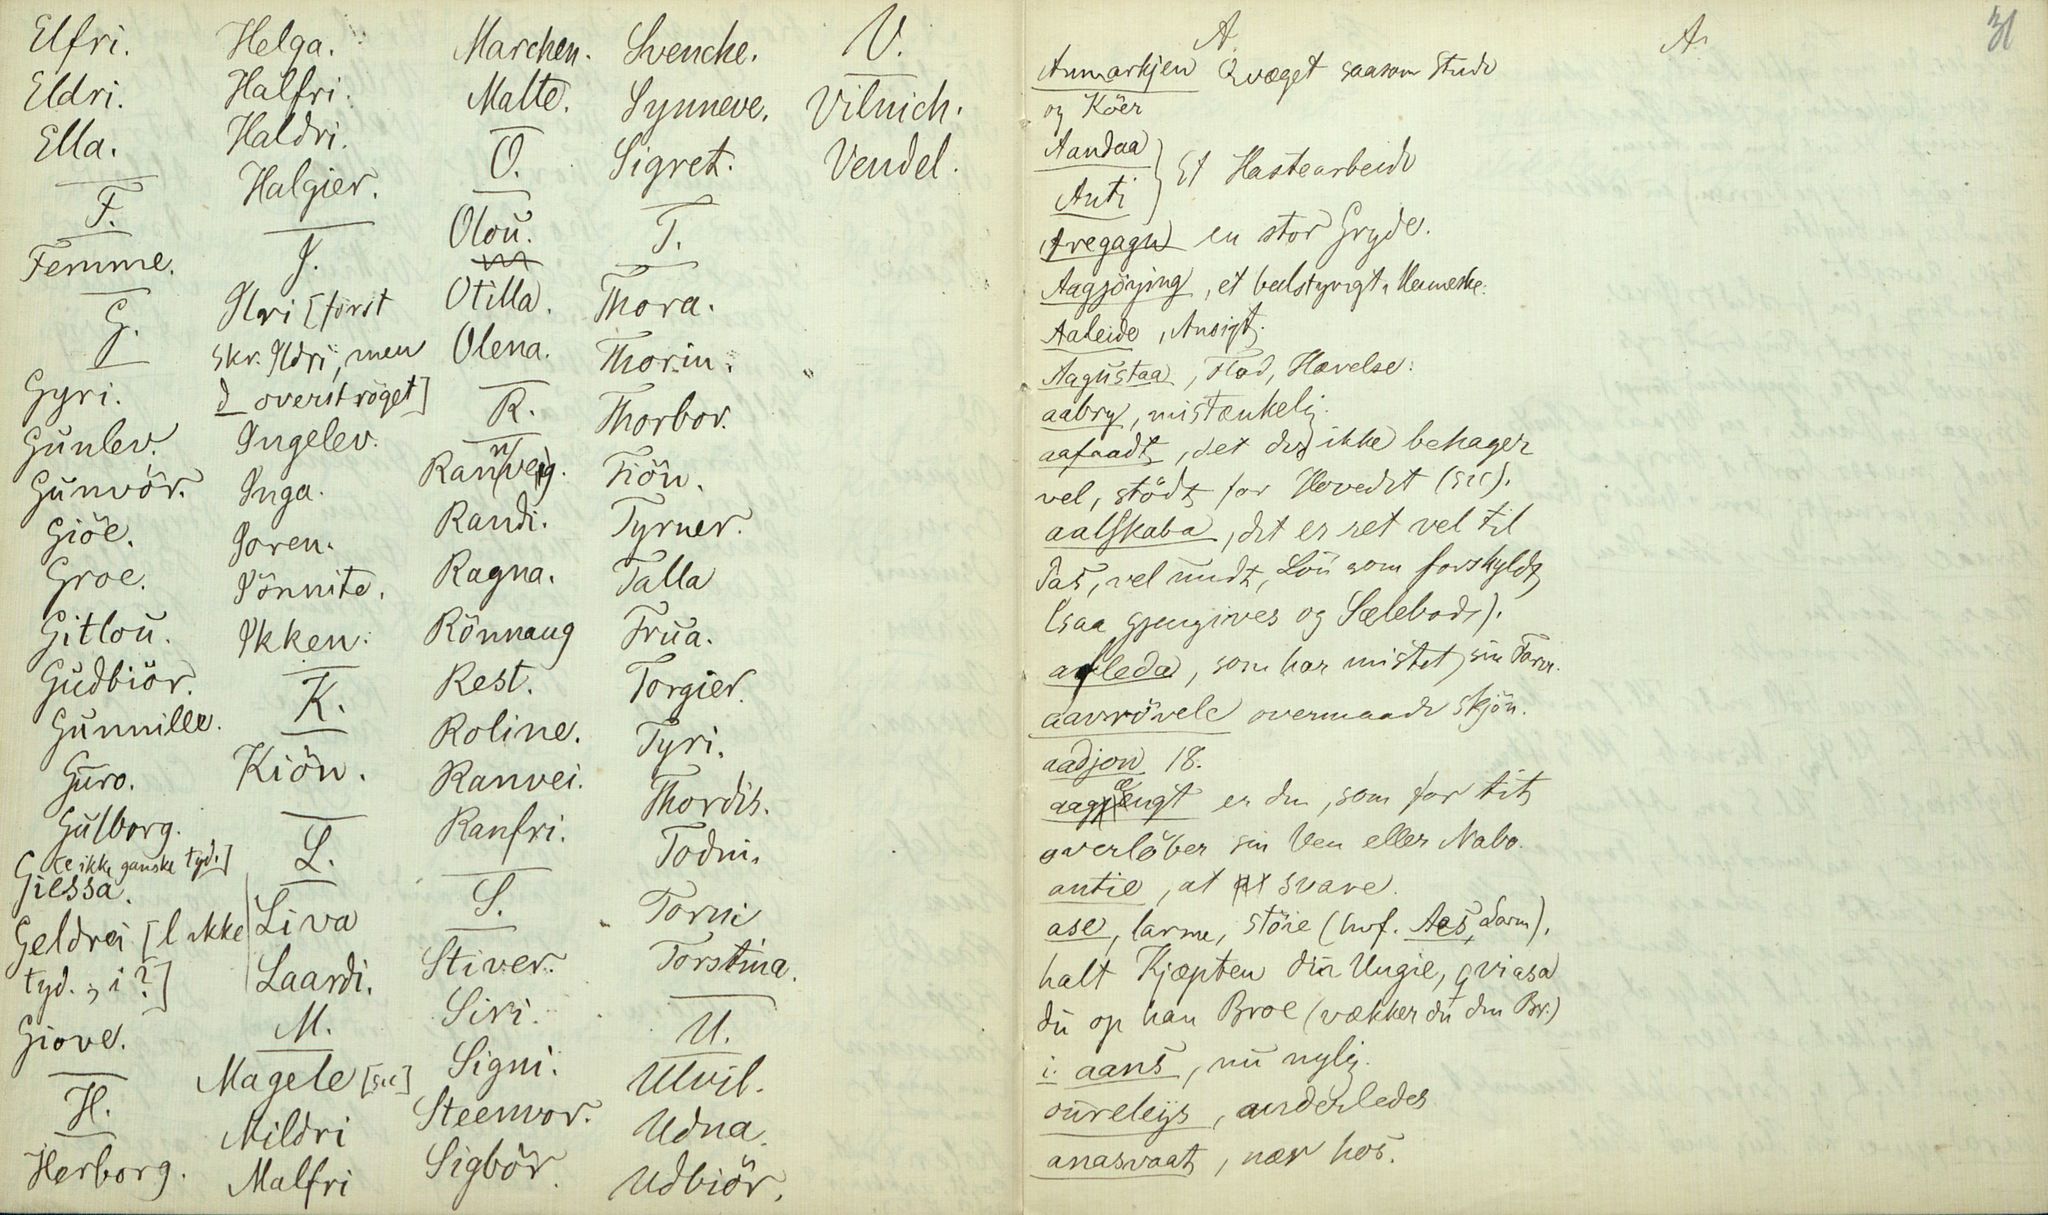 Elfri.
Eldri.
Ella.
F.
Femme.
G.
Gyri.
Gunlev.
Gunvör.
Giöe.
Groe.
Gitlou.
Gudbiör.
Gunnille.
Guro.
Gulborg.
[e ikke ganske tyd.]
Giessa.
Geldrei [l ikke
tyd., i?]
Giove.
H.
Herborg.
Helga.
Halfri.
Haldri.
Halgier.
J.
Ilri [först
skr. Ildri, men
d overströget]
Ingelev.
Inga.
Joren.
Jönnite.
Ikken.
K.
Kiön.
L.
Liva
Laardi.
M.
Magele [sic]
Mildri
Malfri
Marchen.
Malte.
O.
Olou.
Otilla.
Olena.
R.
Ranveig.
Randi.
Ragna.
Rönnaug
Rest.
Roline.
Ranvei.
Ranfri.
S.
Stiver.
Siri.
Signi.
Steenvor.
Sigbör.
Svencke.
Synneve.
Sigret.
T.
Thora.
Thorin.
Thorbor.
Tiön.
Tyrner.
Talla
Trua.
Torgier.
Tyri.
Thordis.
Todni.
Torni
Torstina.
U.
Ulvil.
Udna.
Udbiör.
V.
Vilnich.
Vendel.
31
A. A.
Anmarkjen Qvæget saasom Stude
og Köer
Aandaa
Anti } Et Hastearbeide
Aregagn en stor Gryde.
Aagjöying, et balstyrigt Menneske.
Aaleide, Ansigt.
Aagustaa, Had, Hævelse.
aabry, mistænkelig.
aafaadt, det der ikke behager
vel, stödt for Hovedet (sic).
aalskaba, det er ret vel til
Pas, vel undt, Lön som forskyldt
(saa gjengives og Sælebod).
afleda, som har mistet sin Farve.
aavrövele overmaade skjön.
aadjon 18.
er den, som for tit
overlöber sin Ven eller Nabo.
antie, at svare.
ase, larme, stöie (hvf. Aas, Larm).
halt Kjæpten din Ungie, qviasa
du op han Broe (vækker du den Br.)
i. aans, nu nylig.
oureleijs, anderledes
anasvaat, nær hos.